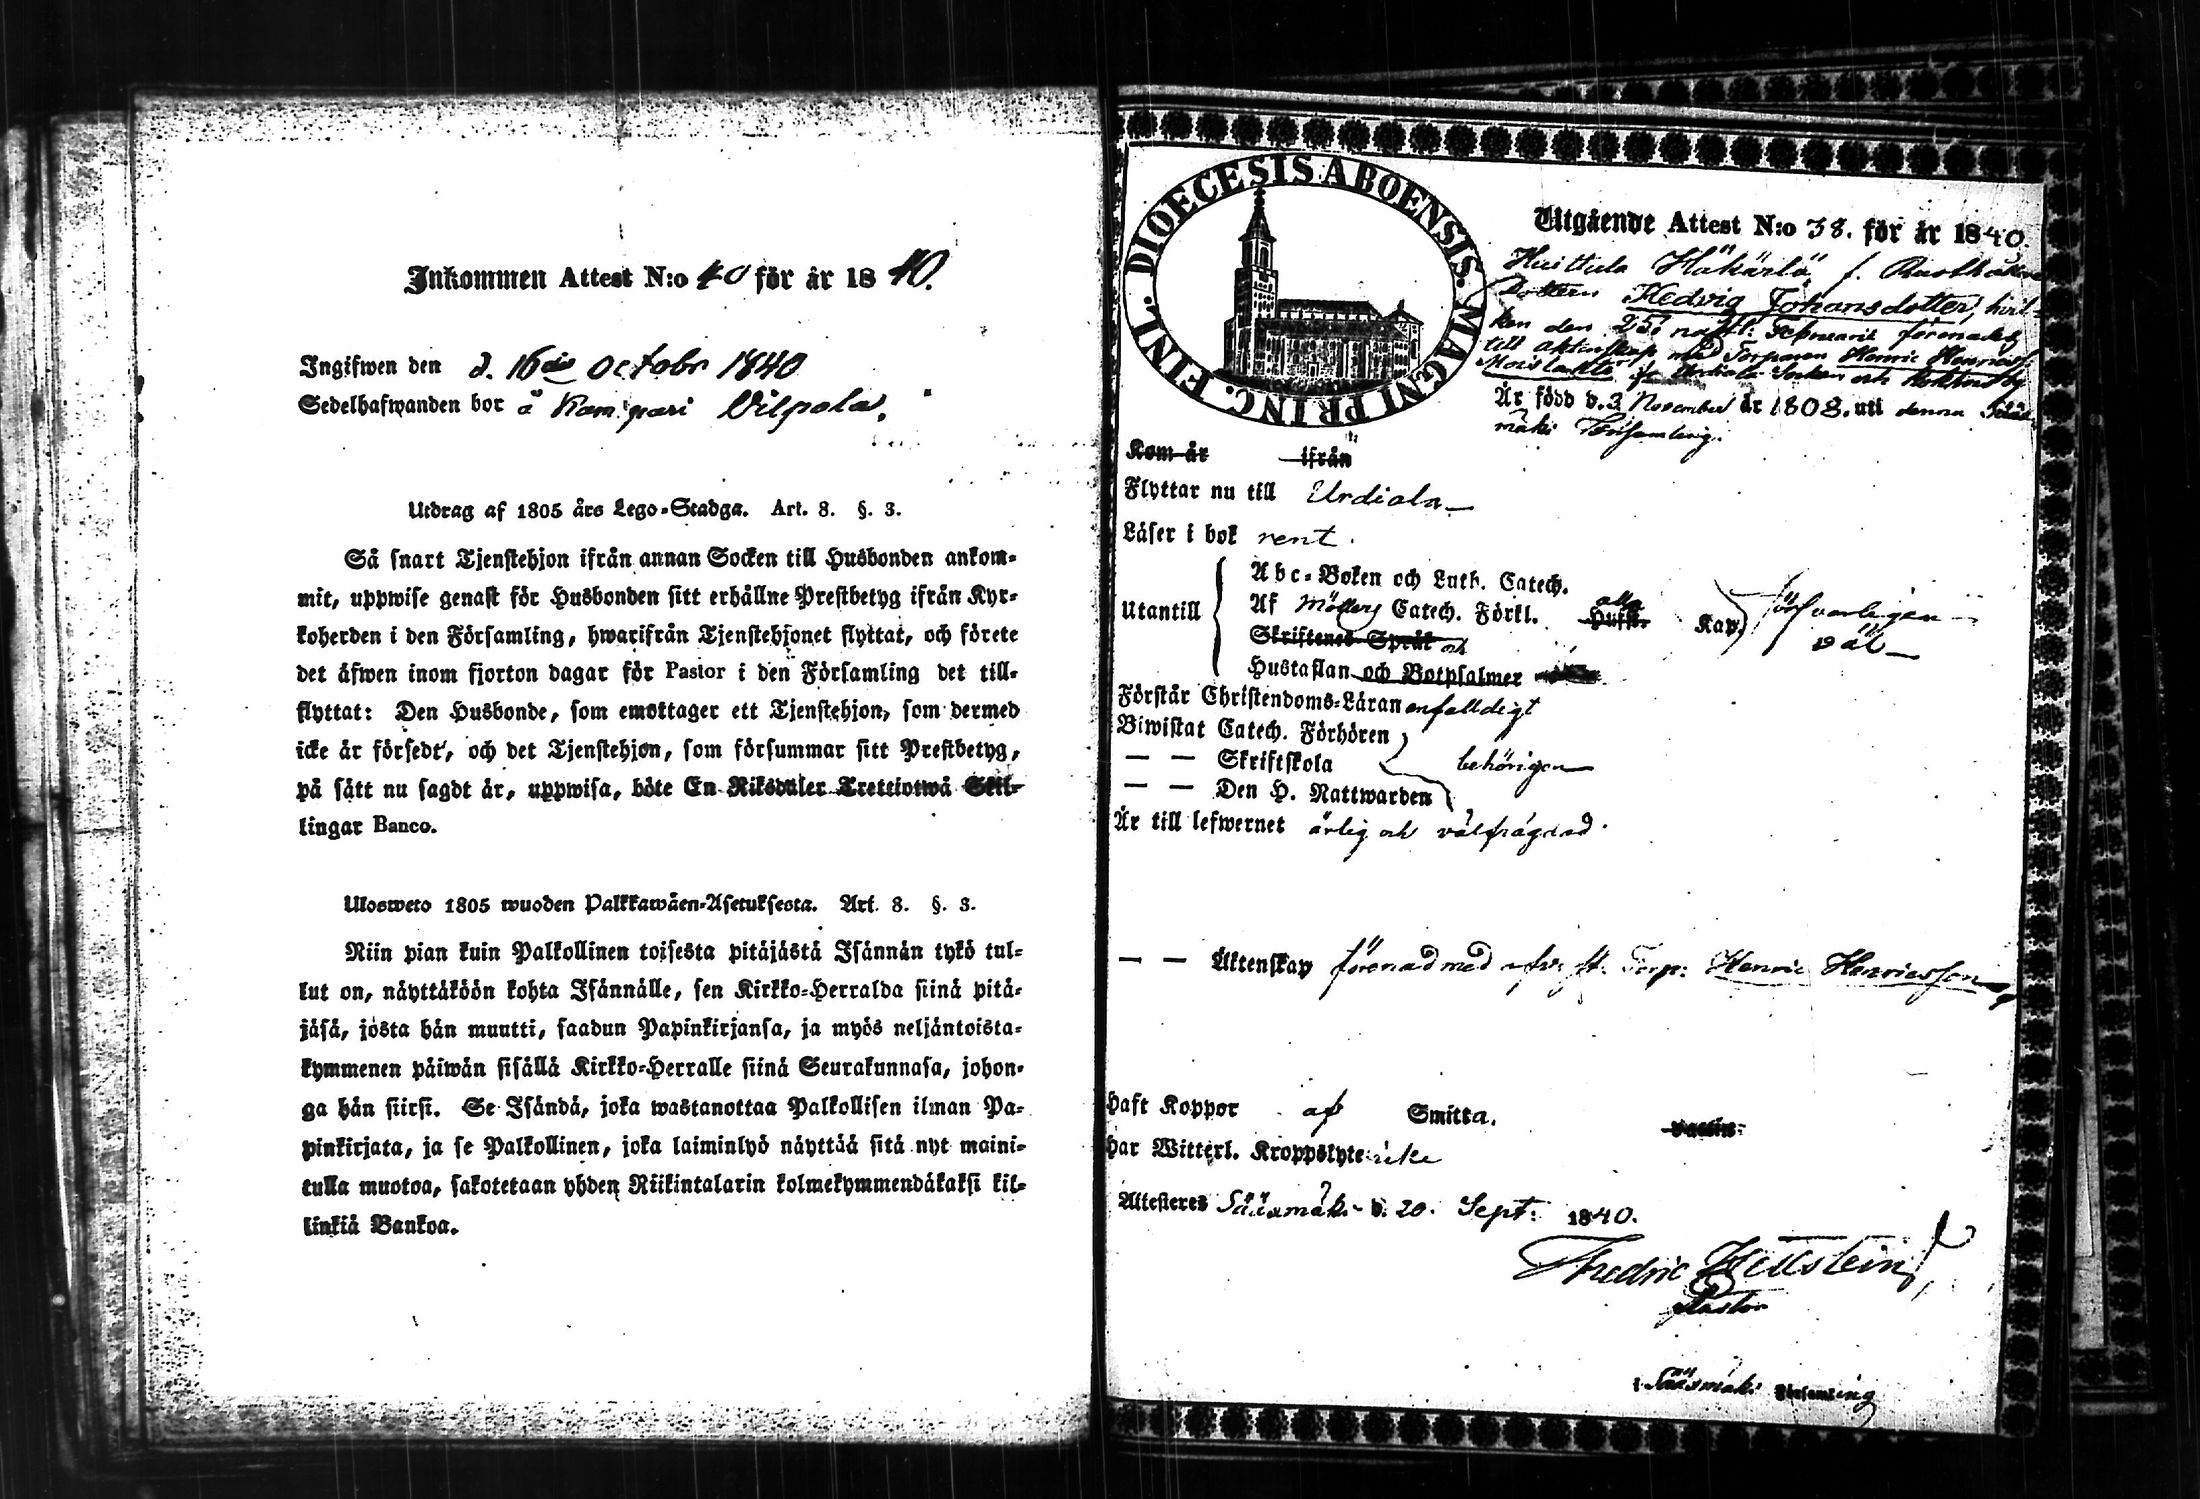 Inkommen Attest N:o 40 för år 1840.
Ingifwen den d. 16de October 1840
Sedelhafwanden bor å Kampari Vilpola.
Utdrag af 1805 års Lego-Stadga. Art. 8. §. 3.
Så snart Tjenstehjon ifrån annan Socken till Husbonden ankom-
mit, uppwise genast för Husbonden sitt erhållne Prestbetyg ifrån Kyr-
koherden i den Församling, hwarifrån Tjenstehjonet flyttat, och förete
det äfwen inom fjorton dagar för Pastor i den Församling det till-
flyttat: Den Husbonde, som emottager ett Tjenstehjon, som dermed
icke är försedt, och det Tjenstehjon, som försummar sitt Prestbetyg,
på sätt nu sagdt är, uppwisa, böte En Riksdaler Trettiotwå Skil-
lingar Banco.
Ulosweto 1805 wuoden Palkkawäen-Asetuksesta. Art. 8. §. 3.
Niin pian kuin Palkollinen toisesta pitäjästä Isännän tykö tul-
lut on, näyttäköön kohta Isännälle, sen Kirkko-Herralda siinä pitä-
jäsä, josta hän muutti, saadun Papinkirjansa, ja myös neljäntoista-
kymmenen päiwän sisällä Kirkko-Herralle siinä Seurakunnasa, johon-
ga hän siirsi. Se Isändä, joka wastanottaa Palkollisen ilman Pa-
pinkirjata, ja se Palkollinen, joka laiminlyö näyttää sitä nyt maini-
tulla muotoa, sakotetaan yhden Riikintalarin kolmekymmendäkaksi kil-
linkiä Bankoa.
DIOECESIS ABOENSIS. MAGNI PRINC. FINL.
Utgående Attest N:o 38. för år 1840.
Huittula Häkärlä f. Rusthållare
Dottern Hedvig Johansdotter, hvil-
ken den 25 nästl: Februarii förenades
till äktenskap med Torparen Henric Henricss.
Urdiala Socken och
Är född d. 3 November år 1808. uti denna Sääx-
mäki Församling.
Kom år ifrån
Flyttar nu till Urdiala
Läser i bok rent.
Utantill
Abc-Boken och Luth. Catech.
Af Möllers Catech. Förkl. alla Hufst. Kap. försvarligen
Skriftenes Språk och väl
Hustaflan och Botpsalmer
Förstår Christendoms-Läran enfalldigt
Biwistat Catech. Förhören
— — Skriftskola behörigen
— — Den H. Nattwarden
Är till lefwernet ärlig och välfrägdad.
— — Äktenskap förenad med Torp: Henric Henricsson
Haft Koppor af Smitta. vaccin:
Har Witterl. Kroppslyte icke
Attesteres Sääxmäki d. 20. Sept: 1840.
Fredric Hellstein,
Pastor
i Sääxmäki Församling